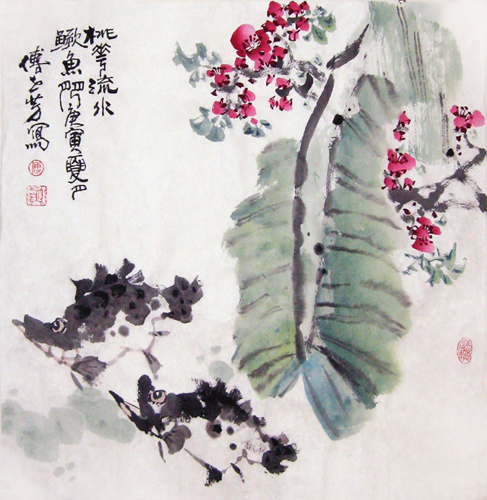 桃華流水
鱖魚肥庚寅夏月
傅芳寫